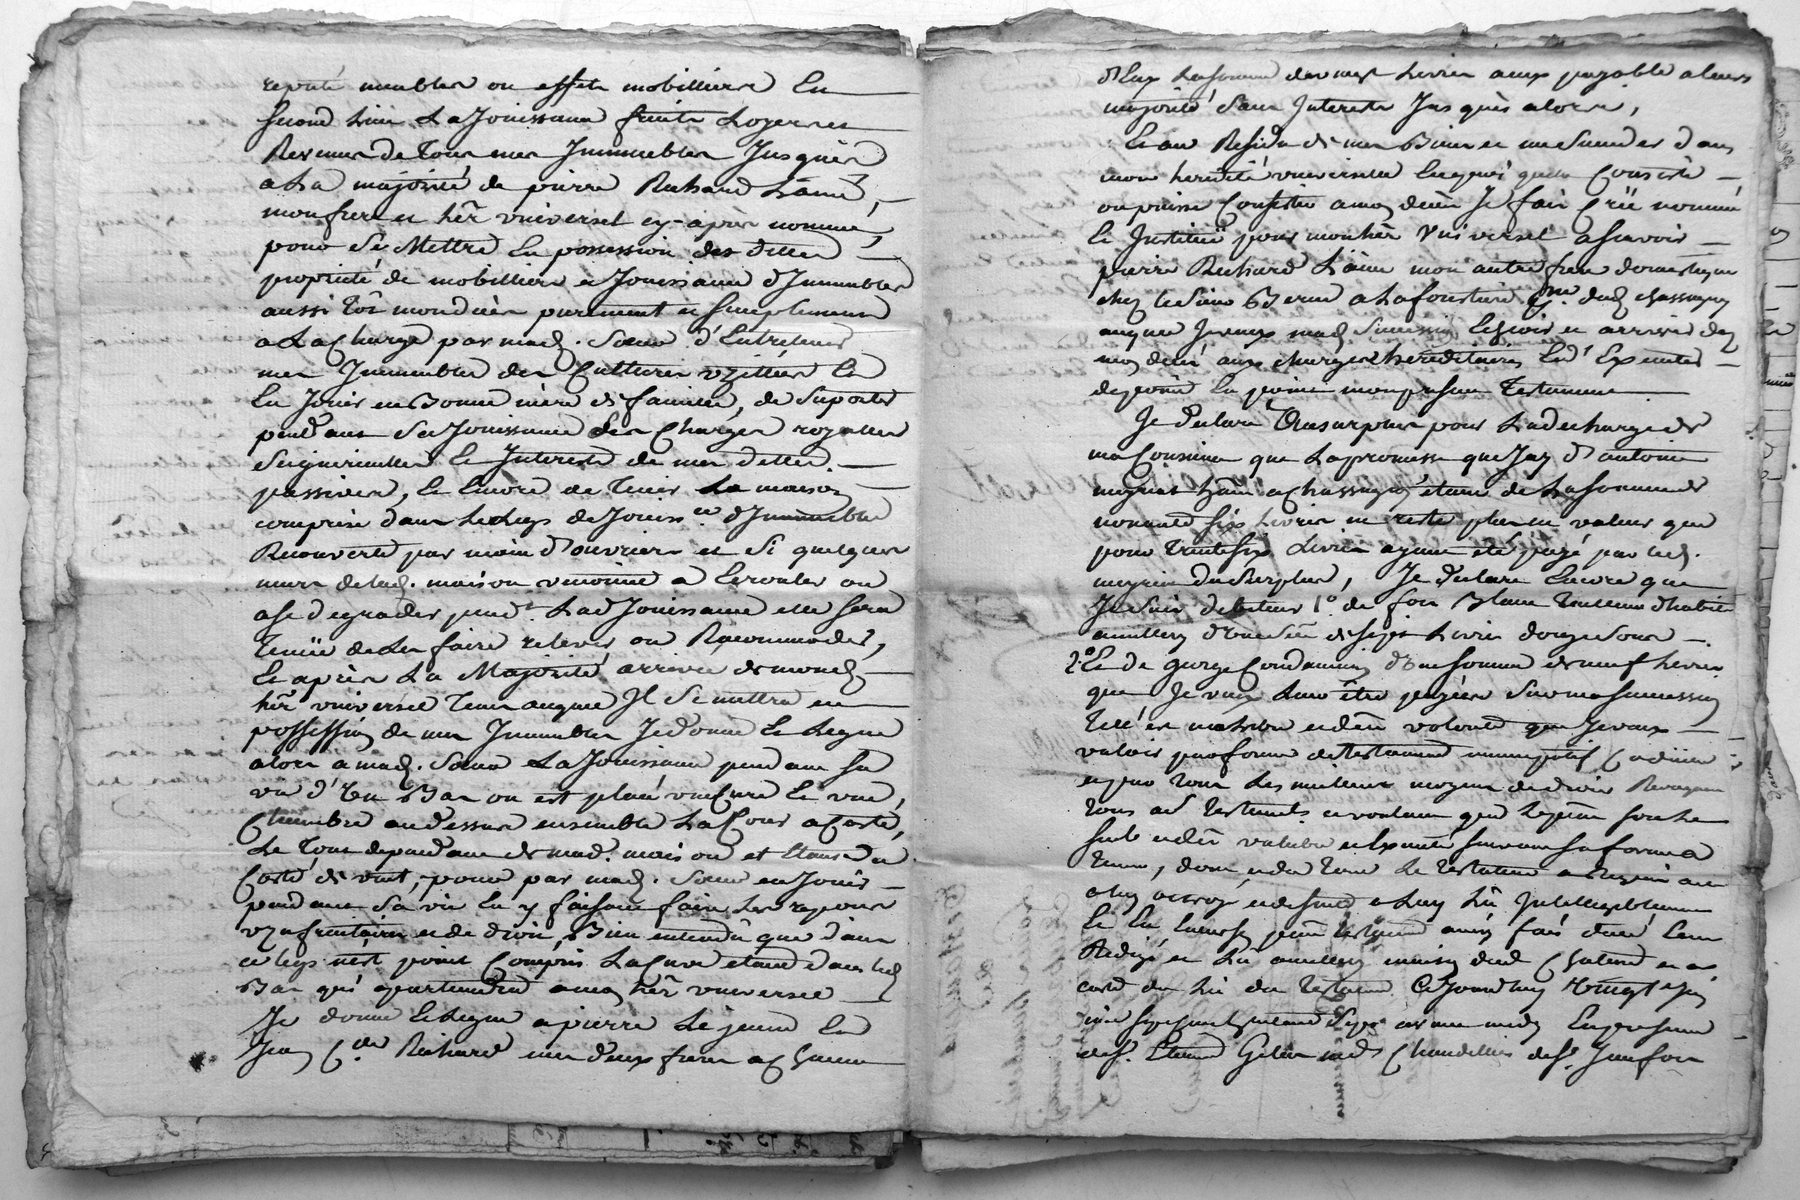 reputé meubles ou effets mobilliers En
second Lieu La Jouissance fruits Loyers et
Revenus de Tous mes Immeubles Jusques
a La majorité de pierre Richard L'ainé,
mon frere et hér universel cy-apres nommé,
pour Se Mettre En possession des dittes
proprieté de mobilliers et Jouissance d'Immeubles
aussi tôt mon décès purement et simplement
a La Charge par mad. Sœur d'Entretenir
mes Immeubles des Cultures uzittées Et
En Jouir en Bonne mere de famille, de Suporter
pendant Sa Jouissance Les Charges royalles
Seigneurialles Et Interests de mes dettes
passives, Et Encore de Tenir La maison
comprise dans Le Legs de Jouiss.ce d'Immeubles
Recouverte par main d'ouvriers et Si quelques
murs de lad. maison venoient a Ecrouler ou
a se degrader pend.t Lad Jouissance elle sera
Tenüe de Les faire relever, ou Racommoder,
Et apres La Majorité arrivée de mond.
hér universel Temps auquel Il Se mettra en
possession de mes Immeubles Je donne Et Legue
alors a mad. Sœur La Jouissance pendant Sa
vie d'Un Bas ou est placé une Cuve Et une
Chambre au dessus ensemble La Cour a Costé,
Le Tout dependant de mad. maison et Etant du
Costé de vent, pour par mad. Sœur en Jouir
pendant Sa vie En y faisant faire Les reparations
uzufruitaires et de droit, Bien entendu que dans
ce legs n'est point Compris La Cuve etant dans led
Bas qui apartiendra a mon hér universel
Je donne Et Legue a pierre Le jeune Et
Jean C.de Richard mes deux freres a Chacun
d'Eux La somme de vingt Livres aux payable a leurs
majorité Sans Interests Jusques alors,
Et au Residu de mes Biens et me Succeder dans
mon heredité universelle En quoi qu'elle Consiste
ou puisse Consister a mon décès Je fais Crée nomme
Et Institüe pour mon hér Universel a Scavoir
pierre Richard L'ainé mon autre frere domestique
chez le Sieur Berne a La foretiere
auquel Je veux mad. Succession Echoir et arriver dez
mon décès aux charges hereditaires Et d'Executer
de point En point mon present Testament
Je declare Au surplus pour La decharge de
ma Cousine que La promesse que J'ay d'antoine
a Chassagny étant de La somme de
six Livres ne reste plus en valeur que
pour Trente six Livres ayant été payé par led.
du Surplus, Je declare Encore que
Je Suis debiteur 1° de
d'une Somme de Sept Livres douze Sous
2° Et de George Condamin d'une somme de neuf Livres
que Je veux Leur être payées Sur ma Succession
Telle est ma dern volonté que Je veux
valoir par forme de Testament nuncupatif Codicille
et par Tous Les meilleurs moyens de droit Revoquant
Tous autres Testaments et voulant que Le present Sorte
Seul valable et Executé Suivant Sa forme
teneur, dont Le Testateur a Requis acte
a luy octroyé et de Suite a Luy Lü Intelligiblement
Et En presence des Temoins
Redigé et Lü
costé du Lit du Testateur Ce Jourdhuy Vingt
mil Sept cent avant midy En presence
de S.r Etienne Gelin md Chandellier de S.t Jean fon